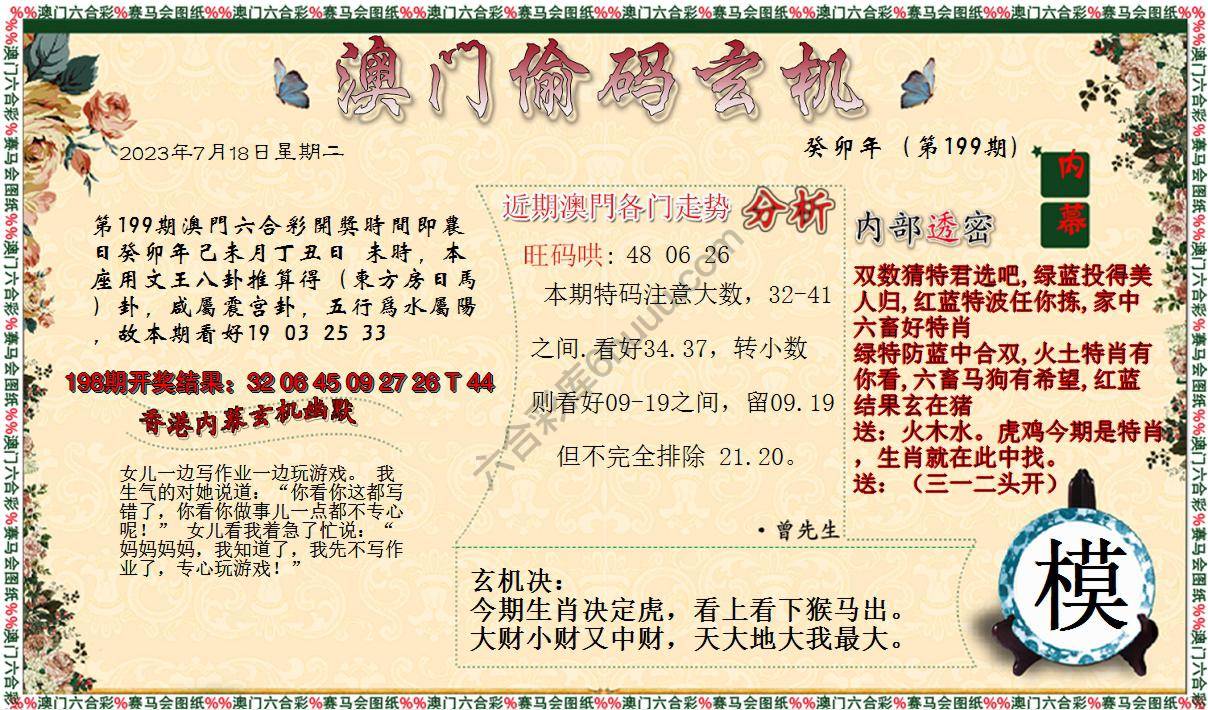 %%澳门六合彩%赛马会图纸%%澳门六合彩%赛马会图纸%%澳门六合彩%赛马会图纸%%澳门六合彩%赛马会图纸%%澳门六合彩%赛马会图纸%%澳门六合彩%赛马会图纸%%
澳门偷码玄机
2023年7月18日星期二
癸卯年（第199期）
内幕
第199期澳門六合彩開獎時間即農
日癸卯年己未月丁丑日 未時，本
座用文王八卦推算得（東方房日馬
）卦，咸屬震宫卦，五行爲水屬陽
，故本期看好19 03 25 33
198期开奖结果：32 06 45 09 27 26 T 44
香港内幕玄机幽默
女儿一边写作业一边玩游戏。 我
生气的对她说道：“你看你这都写
错了，你看你做事儿一点都不专心
呢！” 女儿看我着急了忙说：“
妈妈妈妈，我知道了，我先不写作
业了，专心玩游戏！”
近期澳門各门走势 分析
旺码哄: 48 06 26
本期特码注意大数，32-41
之间.看好34.37，转小数
则看好09-19之间，留09.19
但不完全排除 21.20。
·曾先生
内部透密
双数猜特君选吧,绿蓝投得美
人归,红蓝特波任你拣,家中
六畜好特肖
绿特防蓝中合双,火土特肖有
你看,六畜马狗有希望,红蓝
结果玄在猪
送：火木水。虎鸡今期是特肖
，生肖就在此中找。
送：（三一二头开）
玄机决：
今期生肖决定虎，看上看下猴马出。
大财小财又中财，天大地大我最大。
模
%%澳门六合彩%赛马会图纸%%澳门六合彩%赛马会图纸%%澳门六合彩%赛马会图纸%%澳门六合彩%赛马会图纸%%澳门六合彩%赛马会图纸%%澳门六合彩%赛马会图纸%%